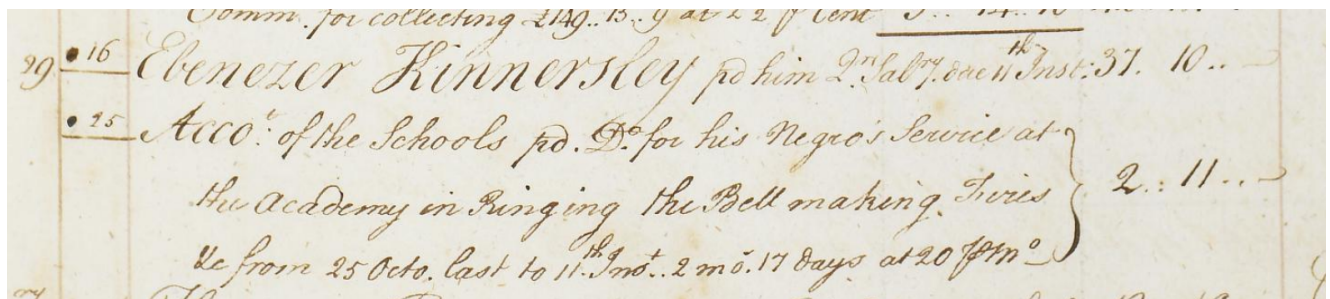 Comm. for collecting £149.. 15.. 9 at 2 ½ ℘ Cent
29 16 Ebenezer Kinnersley pd him Qr. Salry. due 11th Inst: 37. 10.. -
25 Accot. of the Schools pd. Do. for his Negro's Service at
the Academy in Ringing the Bell making Fires 2.. 11.. -
&c from 25 Octo. last to 11th Inst. 2 mo. 17 days at 20 ℘ Mo